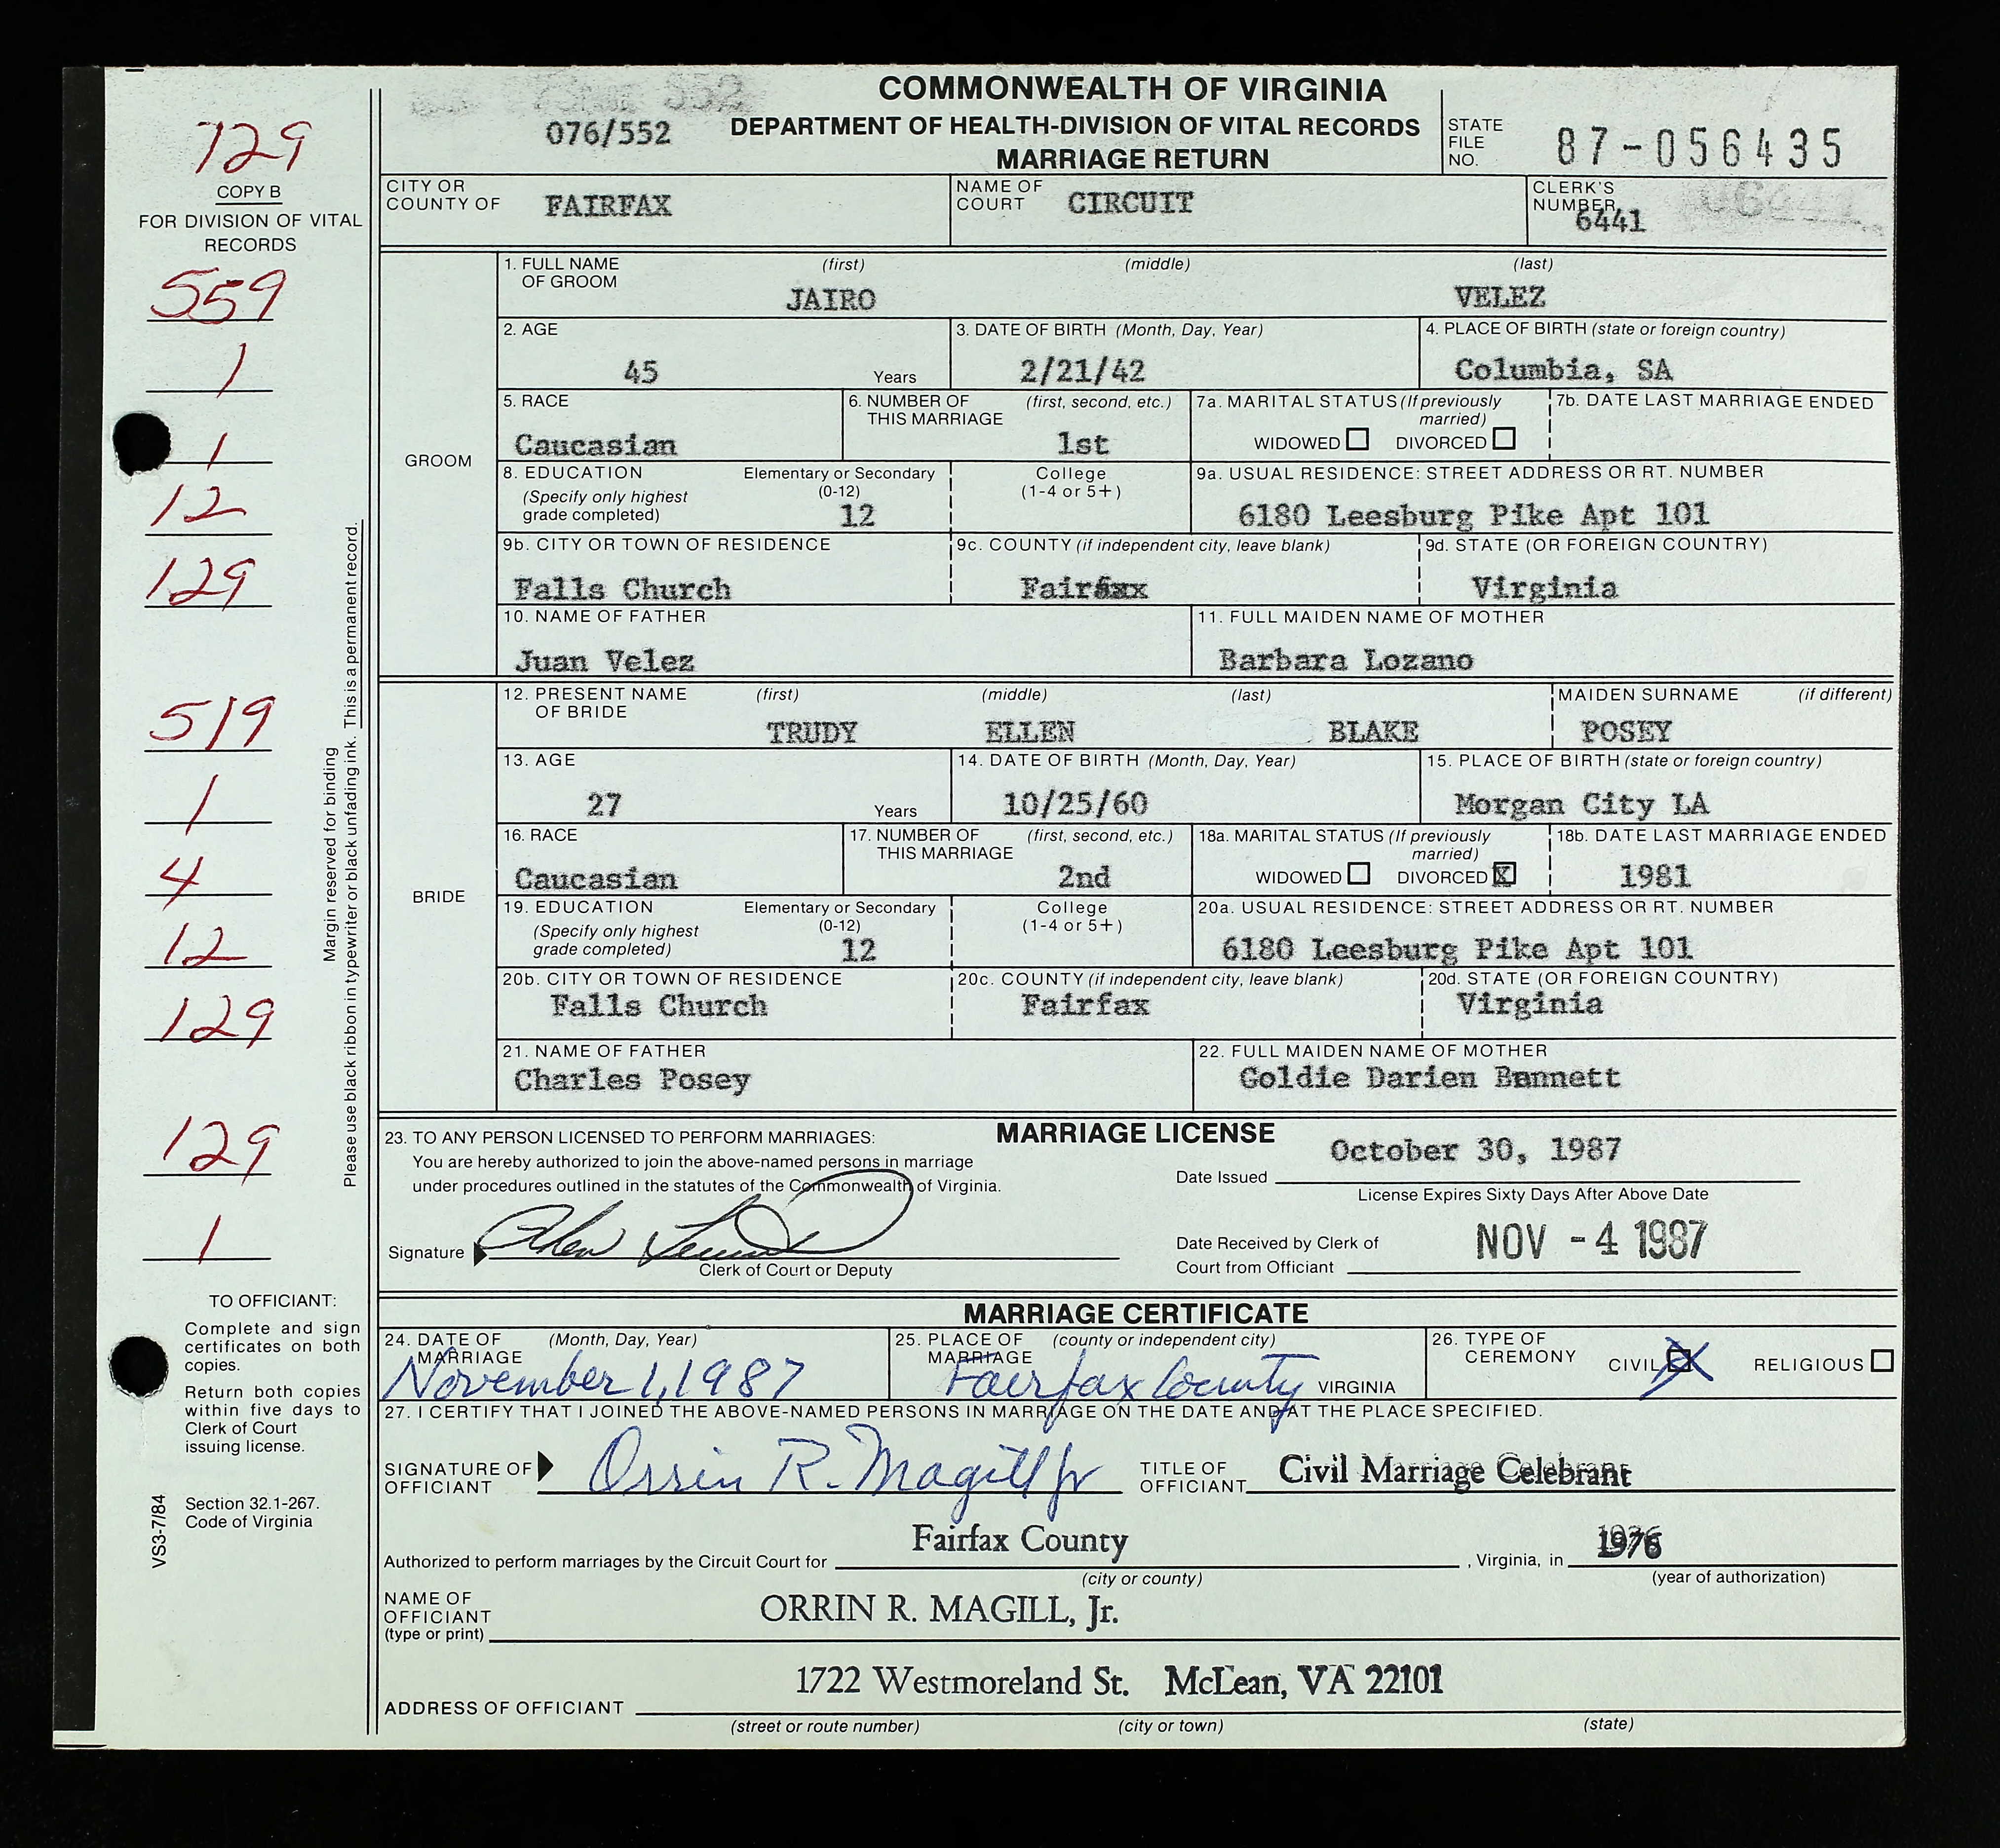 COMMONWEALTH OF VIRGINIA
076/552 DEPARTMENT OF HEALTH-DIVISION OF VITAL RECORDS
MARRIAGE RETURN
STATE FILE NO. 87-056435
CITY OR COUNTY OF FAIRFAX
NAME OF COURT CIRCUIT
CLERK'S NUMBER 6441
729
COPY B
FOR DIVISION OF VITAL
RECORDS
559
1
1
12
129
519
1
4
12
129
129
1
Margin reserved for binding
Please use black ribbon in typewriter or black unfading ink. This is a permanent record.
GROOM
1. FULL NAME OF GROOM (first) (middle) (last)
JAIRO VELEZ
2. AGE 3. DATE OF BIRTH (Month, Day, Year) 4. PLACE OF BIRTH (state or foreign country)
45 Years 2/21/42 Columbia, SA
5. RACE 6. NUMBER OF THIS MARRIAGE (first, second, etc.) 7a. MARITAL STATUS (If previously married) 7b. DATE LAST MARRIAGE ENDED
Caucasian 1st WIDOWED DIVORCED
8. EDUCATION Elementary or Secondary College 9a. USUAL RESIDENCE: STREET ADDRESS OR RT. NUMBER
(Specify only highest grade completed) (0-12) (1-4 or 5+)
12 6180 Leesburg Pike Apt 101
9b. CITY OR TOWN OF RESIDENCE 9c. COUNTY (if independent city, leave blank) 9d. STATE (OR FOREIGN COUNTRY)
Falls Church Virginia
10. NAME OF FATHER 11. FULL MAIDEN NAME OF MOTHER
Juan Velez Barbara Lozano
BRIDE
12. PRESENT NAME OF BRIDE (first) (middle) (last) MAIDEN SURNAME (if different)
TRUDY ELLEN BLAKE POSEY
13. AGE 14. DATE OF BIRTH (Month, Day, Year) 15. PLACE OF BIRTH (state or foreign country)
27 Years 10/25/60 Morgan City LA
16. RACE 17. NUMBER OF THIS MARRIAGE (first, second, etc.) 18a. MARITAL STATUS (If previously married) 18b. DATE LAST MARRIAGE ENDED
Caucasian 2nd WIDOWED DIVORCED X 1981
19. EDUCATION Elementary or Secondary College 20a. USUAL RESIDENCE: STREET ADDRESS OR RT. NUMBER
(Specify only highest grade completed) (0-12) (1-4 or 5+)
12 6180 Leesburg Pike Apt 101
20b. CITY OR TOWN OF RESIDENCE 20c. COUNTY (if independent city, leave blank) 20d. STATE (OR FOREIGN COUNTRY)
Falls Church Fairfax Virginia
21. NAME OF FATHER 22. FULL MAIDEN NAME OF MOTHER
Charles Posey Goldie Darien Bennett
MARRIAGE LICENSE
23. TO ANY PERSON LICENSED TO PERFORM MARRIAGES:
You are hereby authorized to join the above-named persons in marriage
under procedures outlined in the statutes of the Commonwealth of Virginia.
Date Issued October 30, 1987
License Expires Sixty Days After Above Date
Signature
Clerk of Court or Deputy
Date Received by Clerk of
Court from Officiant NOV -4 1987
MARRIAGE CERTIFICATE
24. DATE OF MARRIAGE (Month, Day, Year) 25. PLACE OF MARRIAGE (county or independent city) 26. TYPE OF CEREMONY CIVIL X RELIGIOUS
November 1, 1987 Fairfax County VIRGINIA
27. I CERTIFY THAT I JOINED THE ABOVE-NAMED PERSONS IN MARRIAGE ON THE DATE AND AT THE PLACE SPECIFIED.
SIGNATURE OF OFFICIANT Orrin R. Magill Jr TITLE OF OFFICIANT Civil Marriage Celebrant
Authorized to perform marriages by the Circuit Court for Fairfax County, Virginia, in 1976
(city or county) (year of authorization)
NAME OF OFFICIANT (type or print) ORRIN R. MAGILL, Jr.
ADDRESS OF OFFICIANT 1722 Westmoreland St. McLean, VA 22101
(street or route number) (city or town) (state)
TO OFFICIANT:
Complete and sign
certificates on both
copies.
Return both copies
within five days to
Clerk of Court
issuing license.
Section 32.1-267.
Code of Virginia
VS3-7/84